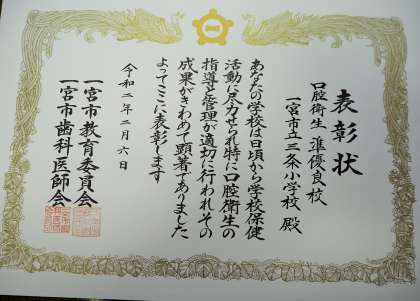 表彰状
口腔衛生 準優良校
一宮市立三条小学校 殿
あなたの学校は日頃から学校保健
活動に尽力せられ特に口腔衛生の
指導と管理が適切に行われその
成果がきわめて顕著でありました
よってここに表彰します
令和二年二月六日
一宮市教育委員会
一宮市歯科医師会